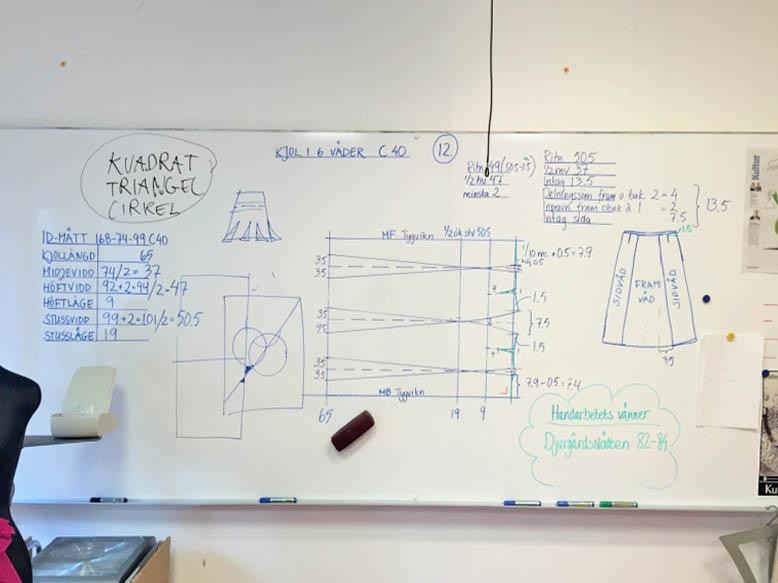 KJOL I 6 VÅDER C 40
12
KVADRAT
TRIANGEL
CIRKEL
ID-MÅTT 168-74-99 C40
KJOLLÄNGD 65
MIDJEVIDD 74/2 = 37
HÖFTVIDD 92+2=94/2=47
HÖFTLÄGE 9
STUSSVIDD 99+2=101/2=50.5
STUSSLÄGE 19
Ritn 49(50.5-1.5)
1/2 hv 47
minska 2
Ritn 50.5
1/2mv 37
Intag 13.5
Delningssöm fram o bak 2 = 4
fram o bak à 1 = 2
Intag sida 7.5
13,5
MF Tygvikn 1/2 ök stv 50.5
1/10 mv +0.5=7.9
3.5
3.5
1.5
3.5
4.5
7.5
1.5
3.5
3.5
7.9-0.5=7.4
MB Tygvikn
65 19 9
1.5
SIDVÅD
FRAM
VÅD
SIDVÅD
3,5
Handarbetets vänner
Djurgårdsslätten 82-84
Kultur
Ku